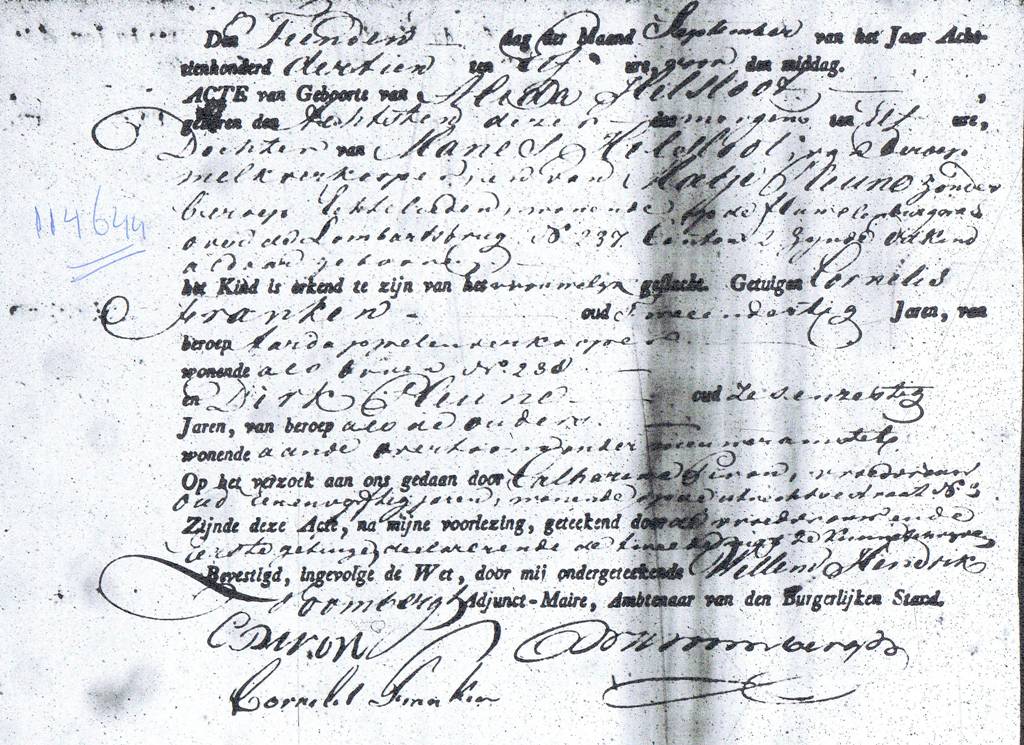 Den Tienden dag der Maand September van het Jaar Acht-
tienhonderd dertien ten elf ure, voor den middag.
ACTE van Geboorte van Alida Hilsloot,
geboren den Achtsten dezer des morgens ten Elf ure,
Dochter van Manes Hilsloot, van beroep
melkverkooper, en van Aatje Pleune zonder
beroep, Echtelieden, wonende op de
over de Lombartsbrug No. 237 Canton 2 Zynde dit kind
aldaar geboren
het Kind is erkend te zijn van het vrouwelyk geslacht. Getuigen Cornelis
Franken oud Twee en dertig Jaren, van
beroep aardappelenverkooper
wonende als boven No. 238
en Dirk Pleune oud Zes en zestig
Jaren, van beroep als de ouders
wonende aan de overtoom onder nieuwer amstel
Op het verzoek aan ons gedaan door Catharina Diron, vroedvrouw
oud Een en veertig jaren, wonende op de utrechtsestraat No. 3
Zijnde deze Acte, na mijne voorlezing, geteekend door de vroedvrouw en de
eerste getuige, declarerende de tweede niet te kunnen
Bevestigd, ingevolge de Wet, door mij ondergeteekende Willem Hendrik
Adjunct-Maire, Ambtenaar van den Burgerlijken Stand.
C Diron
Cornelis Franken
114644